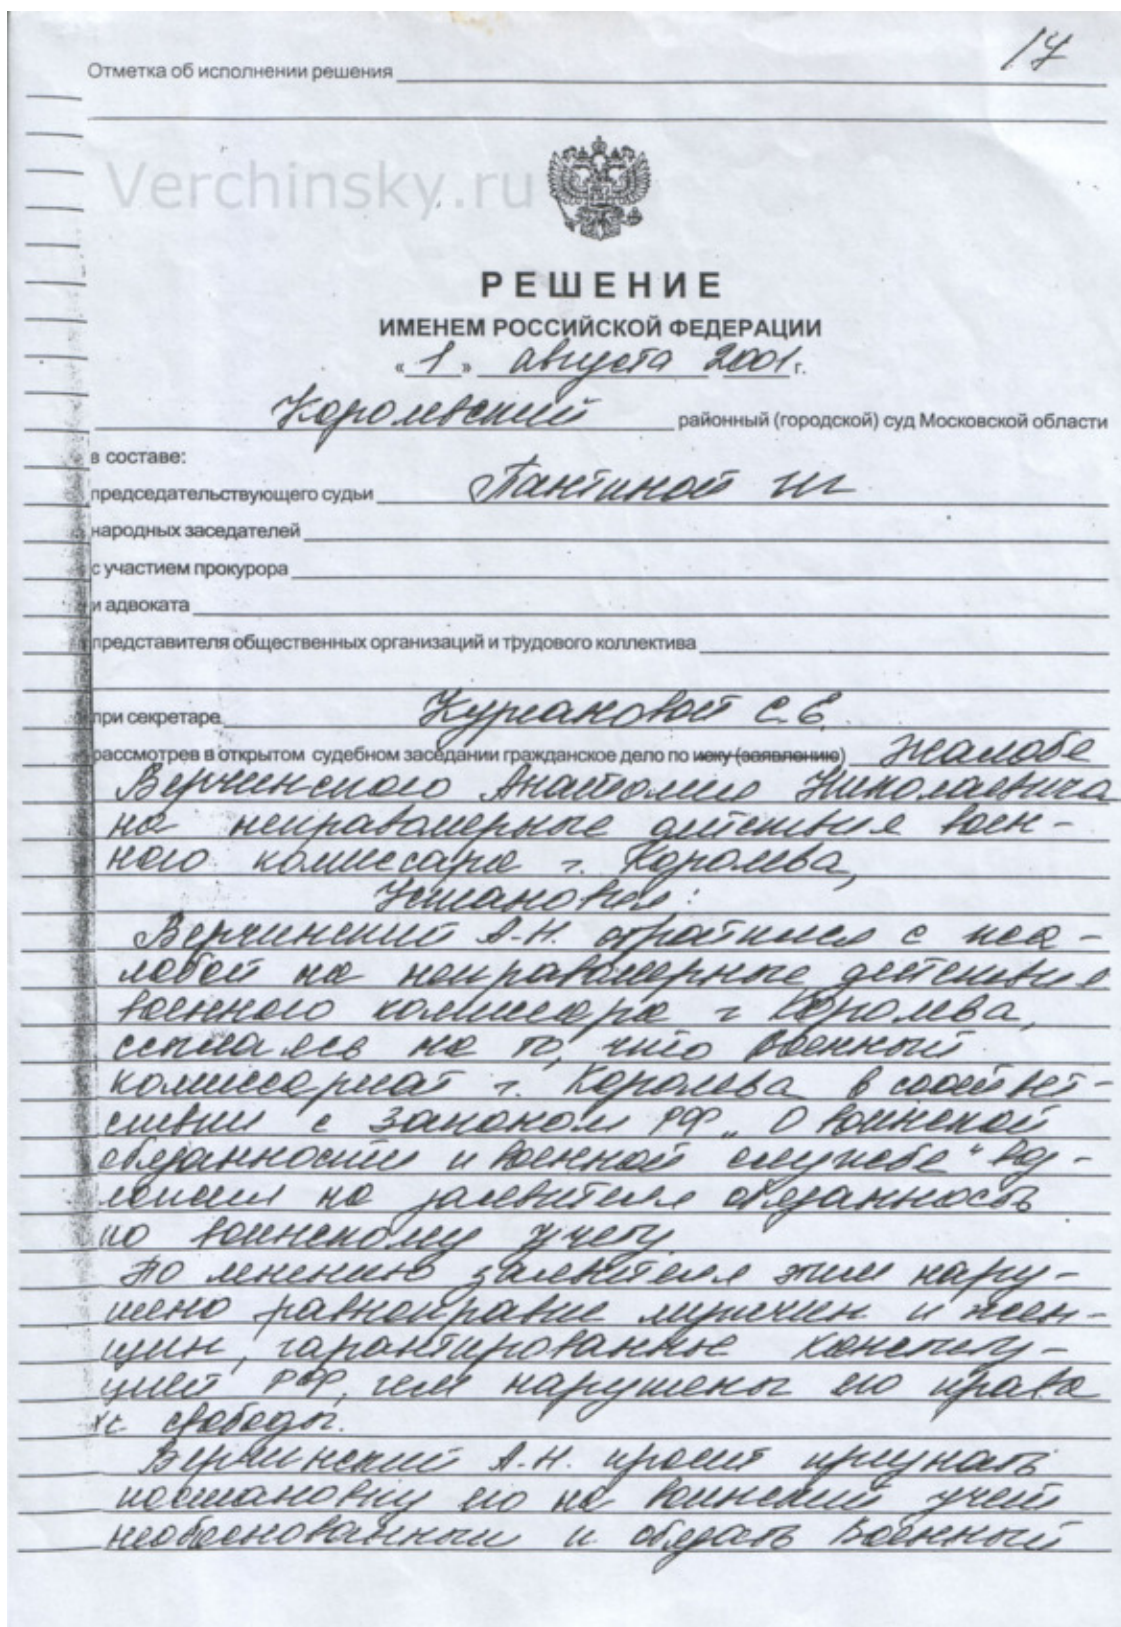 17
Отметка об исполнении решения
Verchinsky.ru
РЕШЕНИЕ
ИМЕНЕМ РОССИЙСКОЙ ФЕДЕРАЦИИ
« 1 » августа 2001 г.
Королевский районный (городской) суд Московской области
в составе:
председательствующего судьи Пантиной
народных заседателей
с участием прокурора
и адвоката
представителя общественных организаций и трудового коллектива
при секретаре С.Е.
рассмотрев в открытом судебном заседании гражданское дело по иску (заявлению) жалобе
Верчинского Анатолия Николаевича
на неправомерные действия воен-
ного комиссара г. Королева,
Установил:
Верчинский А.Н. обратился с жа-
лобой на неправомерные действия
военного комиссара г Королева,
ссылаясь на то, что военный
комиссариат г. Королева в соответ-
ствии с законом РФ „О воинской
обязанности и военной службе" воз-
ложил на заявителя обязанность
по воинскому учету
По мнению заявителя этим нару-
шено равноправие мужчин и жен-
щин, гарантированное Конститу-
цией РФ, чем нарушены его права
и свободы.
Верчинский А.Н. просит признать
постановку его на воинский учет
необоснованным и обязать Военный